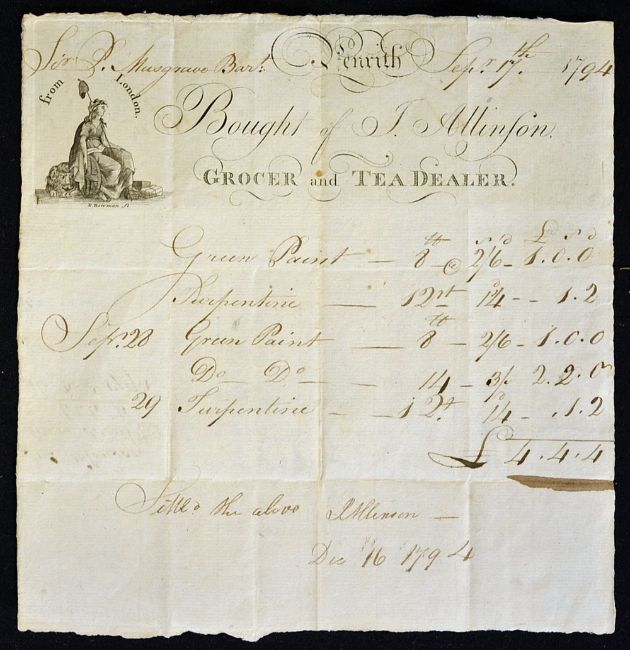 Sir P. Musgrave Bart. Penrith Sepr. 17th 1794
from London.
Bought of J. Allinson.
GROCER and TEA DEALER.
R. Bowman
£ s d
Green Paint — 8 lb @ 2/6 — 1.0.0
Turpentine — 1 2 — 1.2
Sepr. 28 Green Paint — 8 lb — 2/6 — 1.0.0
Do — Do — — 14 — 3/ 2.2.0
29 Turpentine — 1 2 — 1.2
£ 4.4.4
Settld the above J Allinson —
Dec 16 1794